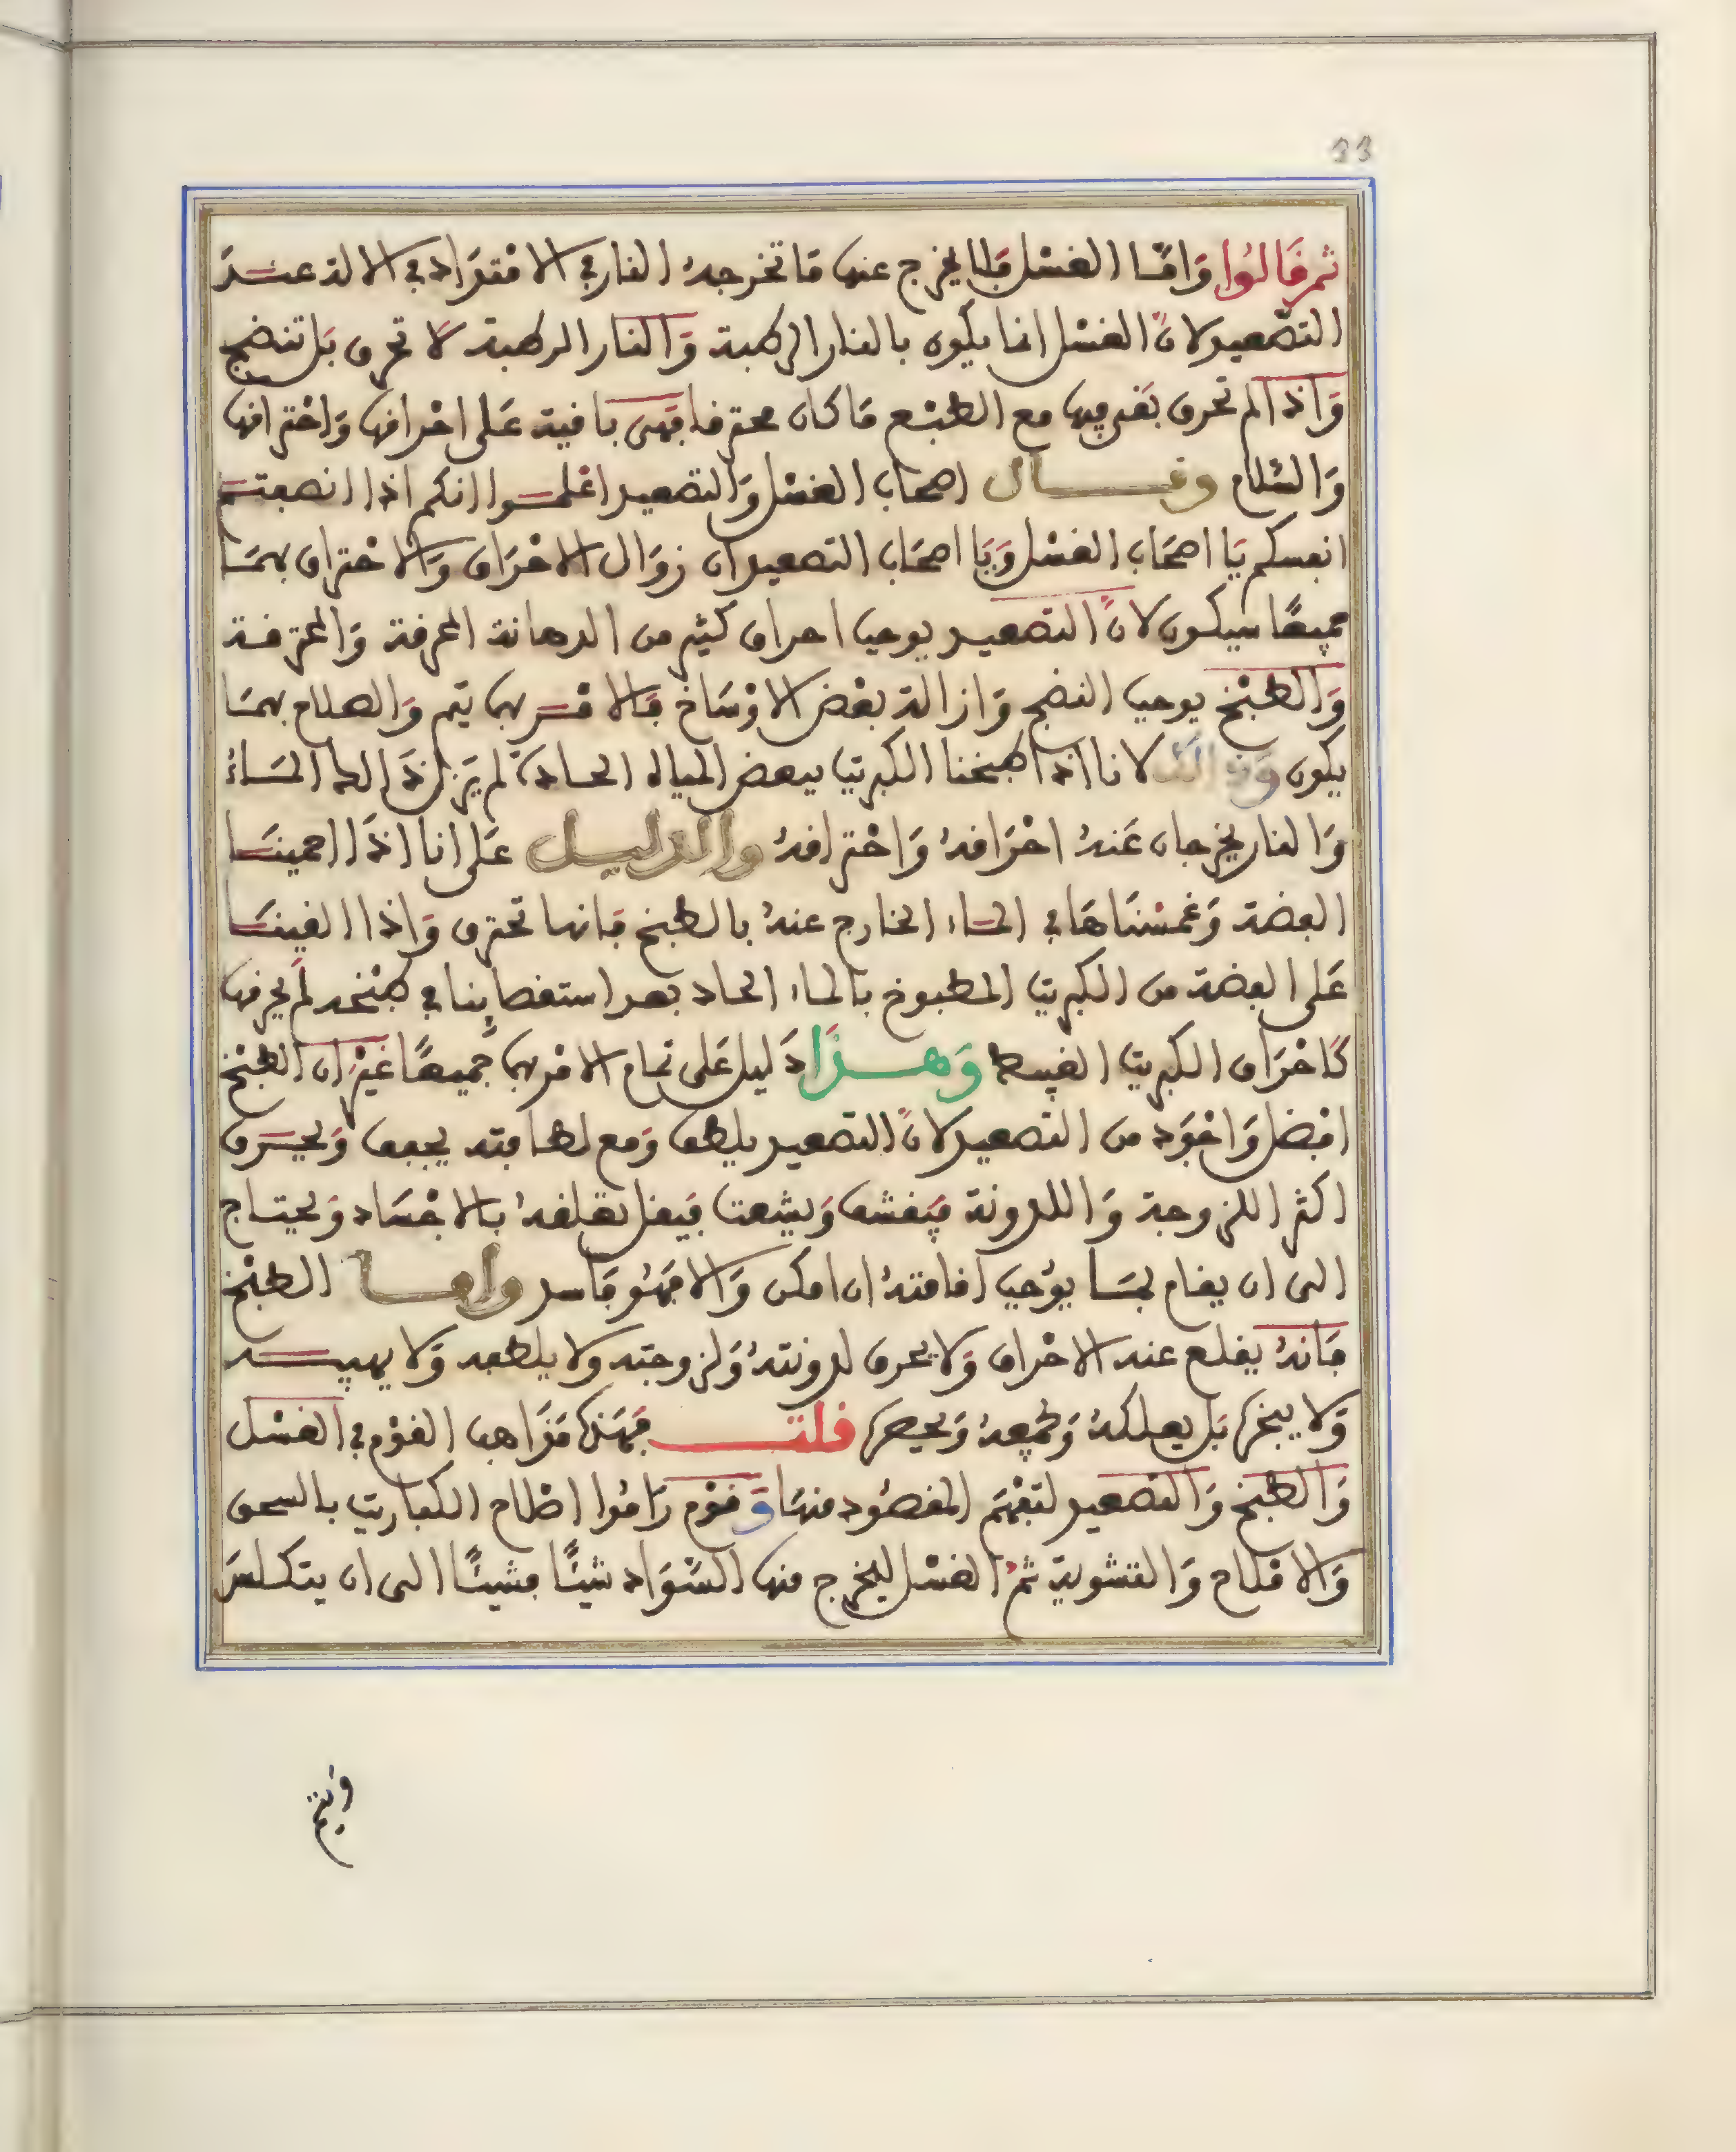 33
ثم قَالوُا وَامّا الغسْل فلا يخرج عنها مَا تخرجهُ النار في الافتوَاد في الالة عند
التصعيد لانّ الغسْل انما يكون بالنار الرطبة وَالنار الرطبة لا تحرق بَل تنضج
وَاذا لم تحرق بَقى فيها مع الطبْع مَا كان محترقا فهى باقية عَلى احْراقها وَاحْتراقها
وَالسّلام وقال اصحاب الغسْل وَالتصعيد اعْلموا انكم اذا انصفتم
انفسكم يَا اصحَاب الغسْل وَيَا اصحَاب التصعيد ان زوَال الاحْرَاق وَالاحْتراق بهمَا
جميعًا سيكون لانّ التصعيد يوجب احراق كثير من الدهانة المحرقة وَالمحترقة
وَالطبْخ يوجب النضج وَازالة بعْض الاوْسَاخ فالامْر بهما يتم وَالصلاح بهمَا
يكون وَذالك لانا اذا طبخنا الكبريت ببعض المياه الحادة لم يَزل ذَالك المَاءُ
وَالنار يخرجان عَنهُ احْرَاقهُ وَاحْتراقهُ والدليل عَلى انا اذَا احمينَا
الفضة وَغمسْنَاهَا في المَاء الخارج عنهُ بالطبخ فانها تحترق وَاذا القينَا
عَلى الفضة من الكبريت المطبوخ بالماء الحاد بعد استقصاينا في طبْخه لم يحرقها
كاحْرَاق الكبريت الغبيط وَهذا دَليل عَلى تمام الامْر بهما جميعًا غيْر ان الطبْخ
افضل وَاجْوَد من التصعيد لانّ التصعيد يلطف وَمع لطافته يجفف وَيحرق
اكثر اللزوجة وَاللدونة فيقشف وَيشعث فيقل تعلقهُ بالاجْسَاد وَيحتاج
الى ان يقام بمَا يوُجب اقامتهُ ان امكن وَالا فهُو فَاسد واما الطبْخ
فَانهُ يقلع عنه الاحْراق وَلا يحرق لدونتهُ وَلزوجته ولا يلطفه وَلا يهيبه
وَلا يبخره بَل يعلكهُ وَيجمعهُ وَيحصره قلت فهَذه مَذَاهب القوْم في الغسْل
وَالطبخ وَالتصعيد لتفهَم المقصُود منهَا وَقوْم رَامُوا اصْلاح الكباريت بالسحق
وَالاملاح وَالتشوية ثمّ الغسْل ليخرج منها السّوَاد شيئًا فشيئًا الى ان يتكلسَ
وَيتم